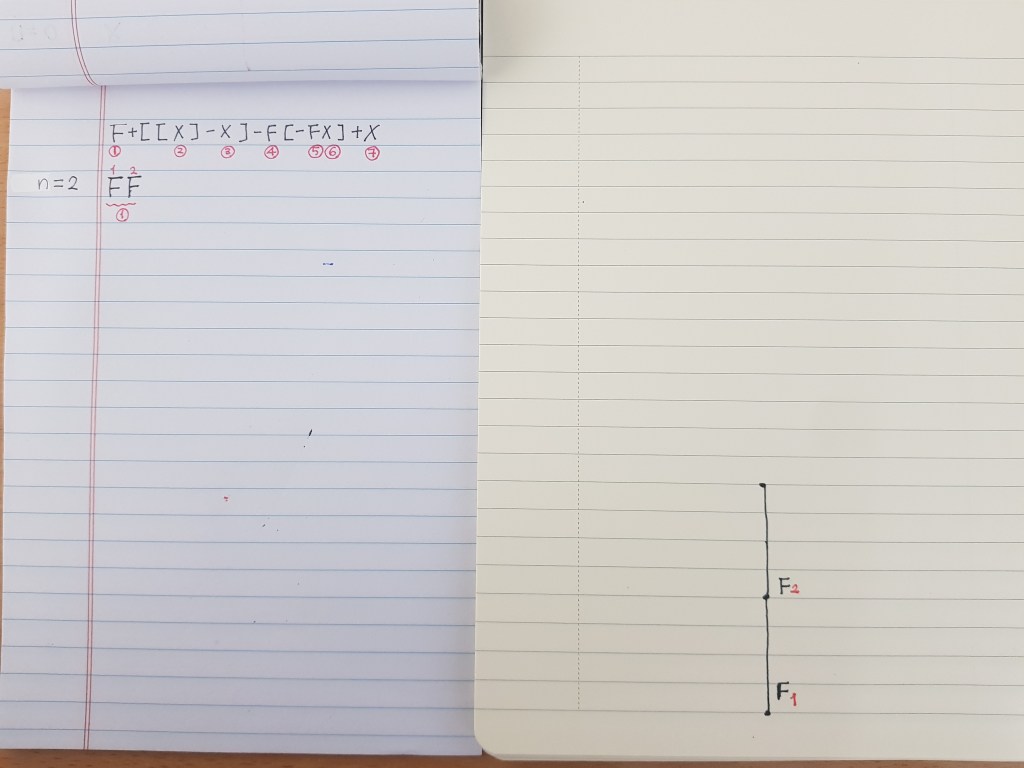 F+[[X]-X]-F[-FX]+X
① ② ③ ④ ⑤⑥ ⑦
1 2
n=2 FF
①
F2
F1